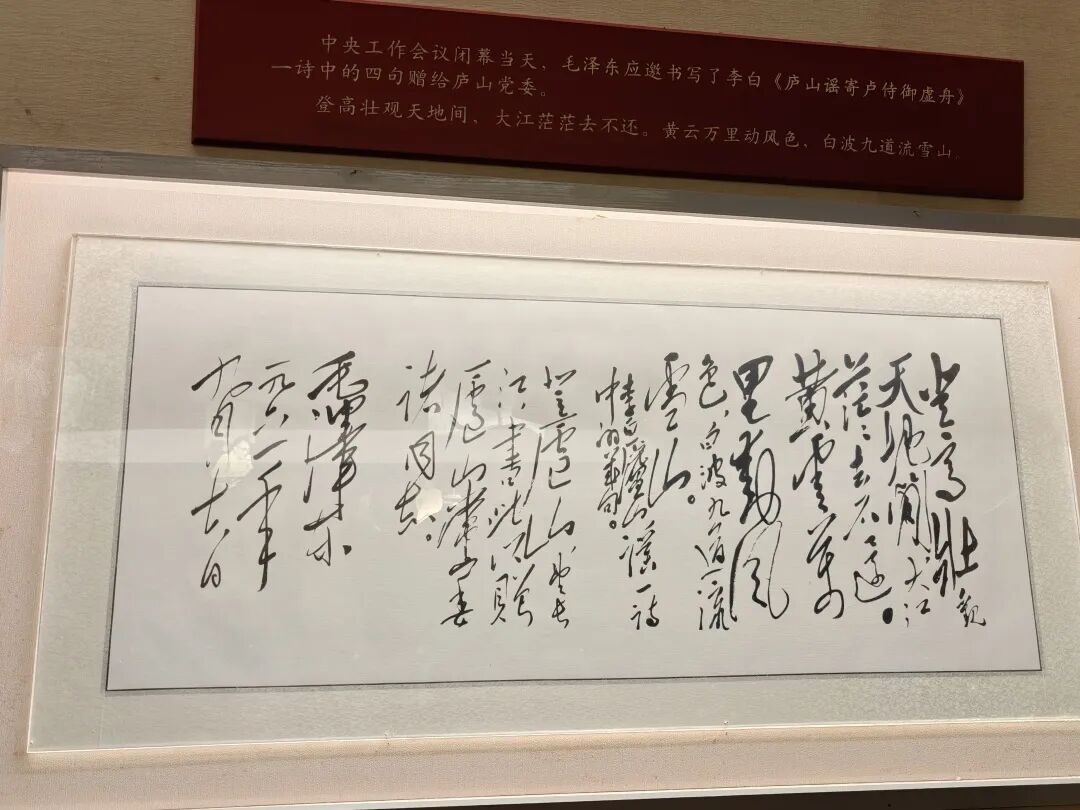 中央工作会议闭幕当天，毛泽东应邀书写了李白《庐山谣寄卢侍御虚舟》
一诗中的四句赠给庐山党委。
登高壮观天地间，大江茫茫去不还。黄云万里动风色，白波九道流雪山。
登高壯觀
天地间大江
茫茫去不还。
黄雲萬
里動風
色，白波九道流
雪山。
李白廬山謠一诗
中的幾句。
登廬山，望长
江，書此以赠
廬山党委
诸同志。
毛澤东
一九六一年
九月十六日